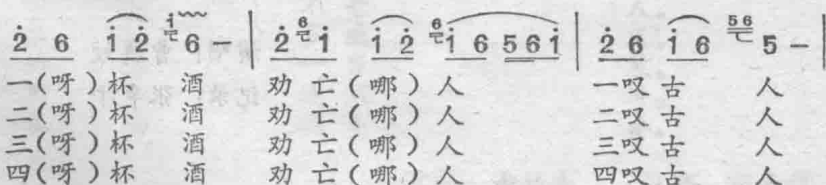 2̇ 6 i̇ 2̇ i̇ 6 – | 2̇ 6 i̇ i̇ 2̇ 6 i̇ 6 5 6 i̇ | 2̇ 6 i̇ 6 5 6 5 – |
一(呀)杯 酒 劝 亡(哪)人 一叹古 人
二(呀)杯 酒 劝 亡(哪)人 二叹古 人
三(呀)杯 酒 劝 亡(哪)人 三叹古 人
四(呀)杯 酒 劝 亡(哪)人 四叹古 人